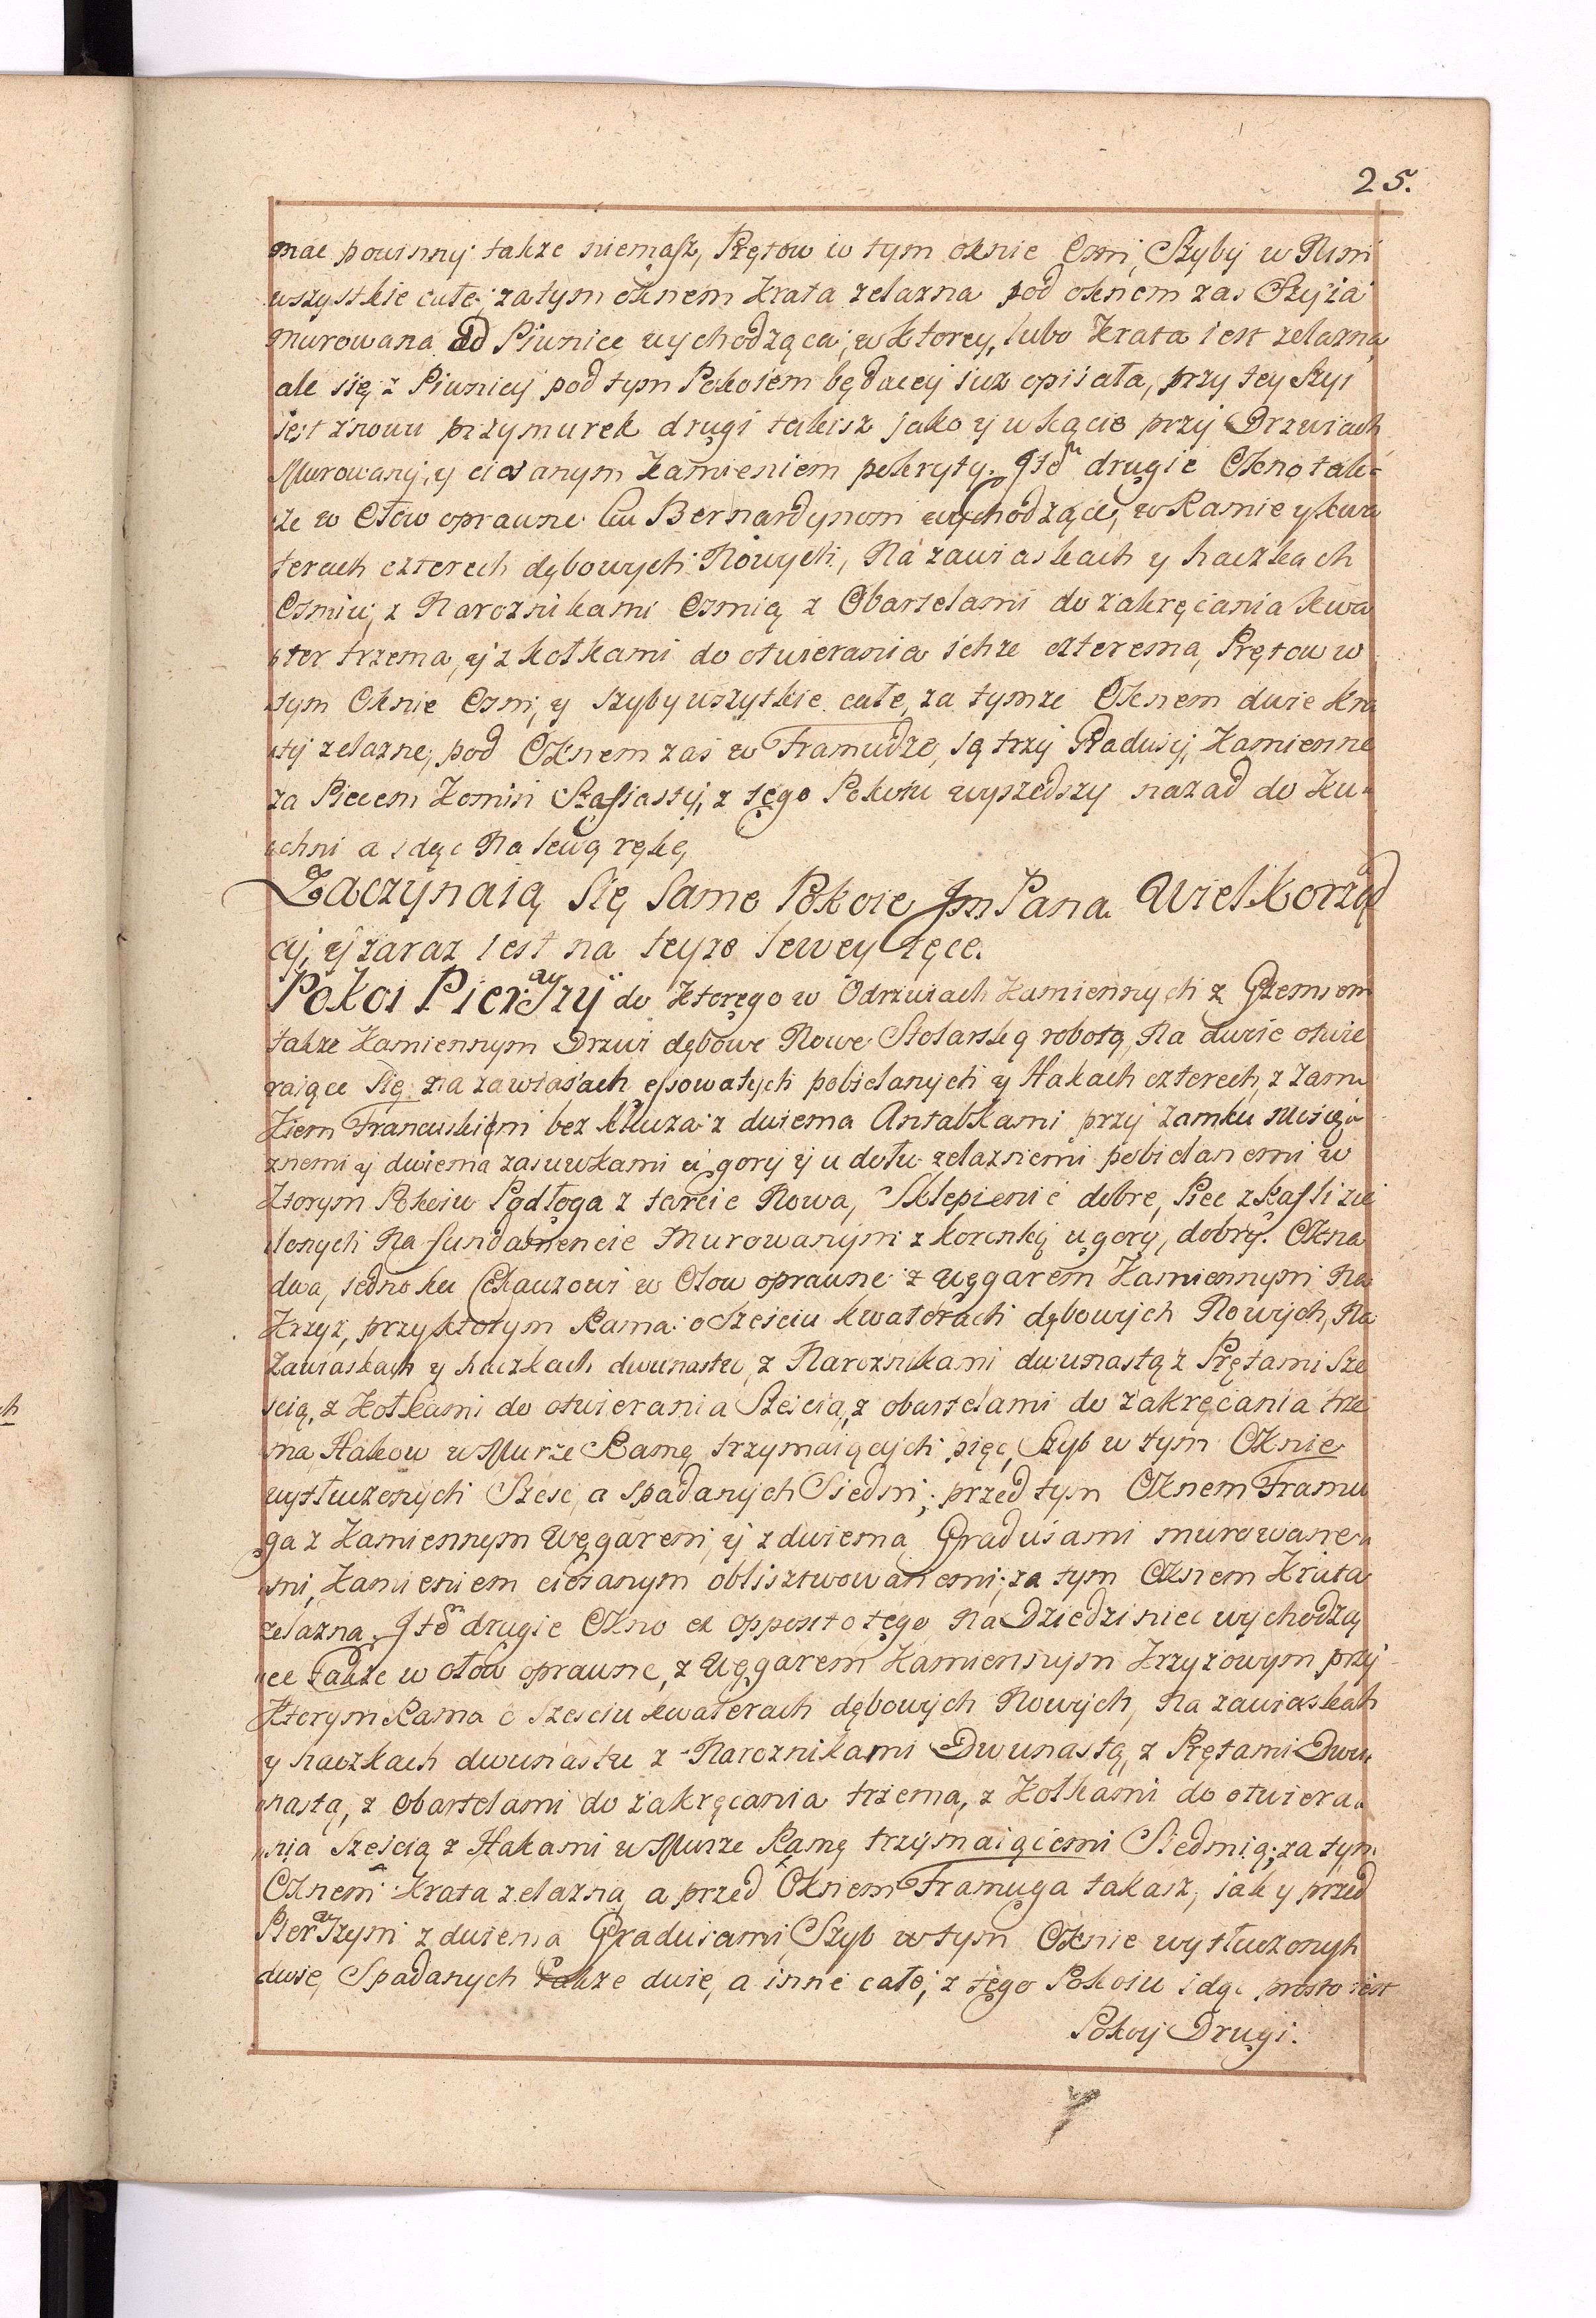 25.
mac powinny takze niemasz, Prętow w tym oknie Osm, Szyby w Nim
wszystkie całe; zatym oknem Krata zelazna pod oknem zas Szyia
murowana od Piwnice wychodząca, w ktorey, lubo Krata iest zelazna
ale się z Piwnicy pod tym Pokoiem będącey iuz opisała, przy tey Szyi
iest znowu przymurek drugi takisz jako y w kącie przy Drzwiach
Murowany, y ciosanym kamieniem pokryty. Jtem drugie Okno tak=
ze w Ołow oprawne ku Bernardynom wychodzące, w Ramie y kwa
terach czterech dębowych Nowych, Na zawiaskach y haczkach
Osmiu, z Naroznikami Osmią z Obartelami do zakręcania kwa
ter trzema, y z kołkami do otwierania ichze czterema, Prętow w
tym Oknie Osm, y Szyby wszytkie całe, za tymze Oknem dwie kra
ty zelazne, pod Oknem zas w Framudze, są trzy Gradusy, Kamienne
za Piecem Komin Szafiasty, z tego Pokoiu wyszedszy nazad do Ku=
chni a idąc Na lewą rękę
Zaczynaią Się Same Pokoie Jm Pana Wielkorząd
cy, y zaraz iest na teyze lewey ręce.
Pokoi Pierwszy do ktorego w Odrzwiach Kamiennych z Gzemsem
takze Kamiennym Drzwi dębowe Nowe Stolarską robotą, Na dwie otwie
raiące Się na zawiasach essowatych pobielanych y Hakach czterech, z zam
kiem Francuskim bez klucza z dwiema Antabkami przy zamku mosięz
znemi y dwiema zasuwkami u gory y u dołu zelaznemi pobielanemi w
Ktorym Pokoiu Podłoga z tarcic Nowa, Sklepienie dobre, Piec z kafli zie
lonych Na fundamencie Murowanym z koronką u gory, dobry. Okna
dwa, iedno ku Schauzowi w Ołow oprawne z Węgarem Kamiennym Na
Krzyz, przy ktorym Rama o Szesciu kwaterach dębowych Nowych, Na
Zawiaskach y haczkach dwunastu, z Naroznikami dwunastą z Prętami Sze
scią, z Kołkami do otwierania Szescią, z obartelami do zakręcania trze
ma, Hakow w Murze Ramę trzymaiących pięc, Szyb w tym Oknie
wytłuczonych Szesc, a spadanych Siedm, przed tym Oknem Framu
ga z Kamiennym Węgarem, y z dwiema Gradusami murowane=
mi, Kamieniem ciosanym oblisztwowanemi; za tym Oknem Krata
zelazna. Jtem drugie Okno ex opposito tego Na Dziedziniec wychodzą
ce takze w ołow oprawne, z Węgarem Kamiennym Krzyzowym przy
Ktorym Rama o Szesciu kwaterach dębowych Nowych, Na zawiaskah
y haczkach dwunastu z Naroznikami Dwunastą, z Prętami Dwu
nastą, z Obartelami do zakręcania trzema, z Kołkami do otwiera=
nia Szescią z Hakami w Murze Ramę trzymaiącemi Siedmią; za tym
Oknem Krata zelazna, a przed Oknem Framuga takasz, iak y przed
Pierwszym z dwiema Gradusami, Szyb w tym Oknie wytłuczonyh
dwie, Spadanych takze dwie, a inne całe, z tego Pokoiu idąc prosto iest
Pokoy Drugi.